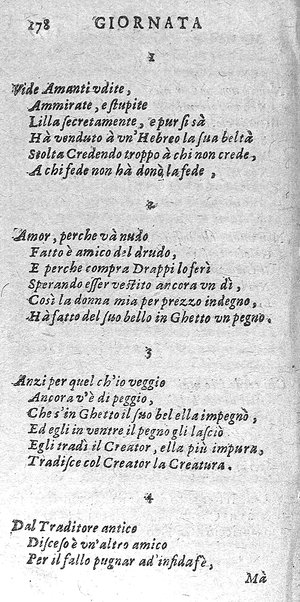 178 GIORNATA
1
Vide Amanti vdite,
Ammirate, e stupite
Lilla secretamente, e pur si sà
Hà venduto à vn'Hebreo la sua beltà
Stolta Credendo troppo à chi non crede,
A chi fede non hà donò la fede,
2
Amor, perche và nudo
Fatto è amico del drudo,
E perche compra Drappi lo ferì
Sperando esser vestito ancora vn dì,
Così la donna mia per prezzo indegno,
Hà fatto del suo bello in Ghetto vn pegno.
3
Anzi per quel ch'io veggio
Ancora v'è di peggio,
Che s'in Ghetto il suo bel ella impegnò,
Ed egli in ventre il pegno gli lasciò
Egli tradì il Creator, ella più impura,
Tradisce col Creator la Creatura.
4
Dal Traditore antico
Disceso è vn'altro amico
Per il fallo pugnar ad'infida fè,
Mà